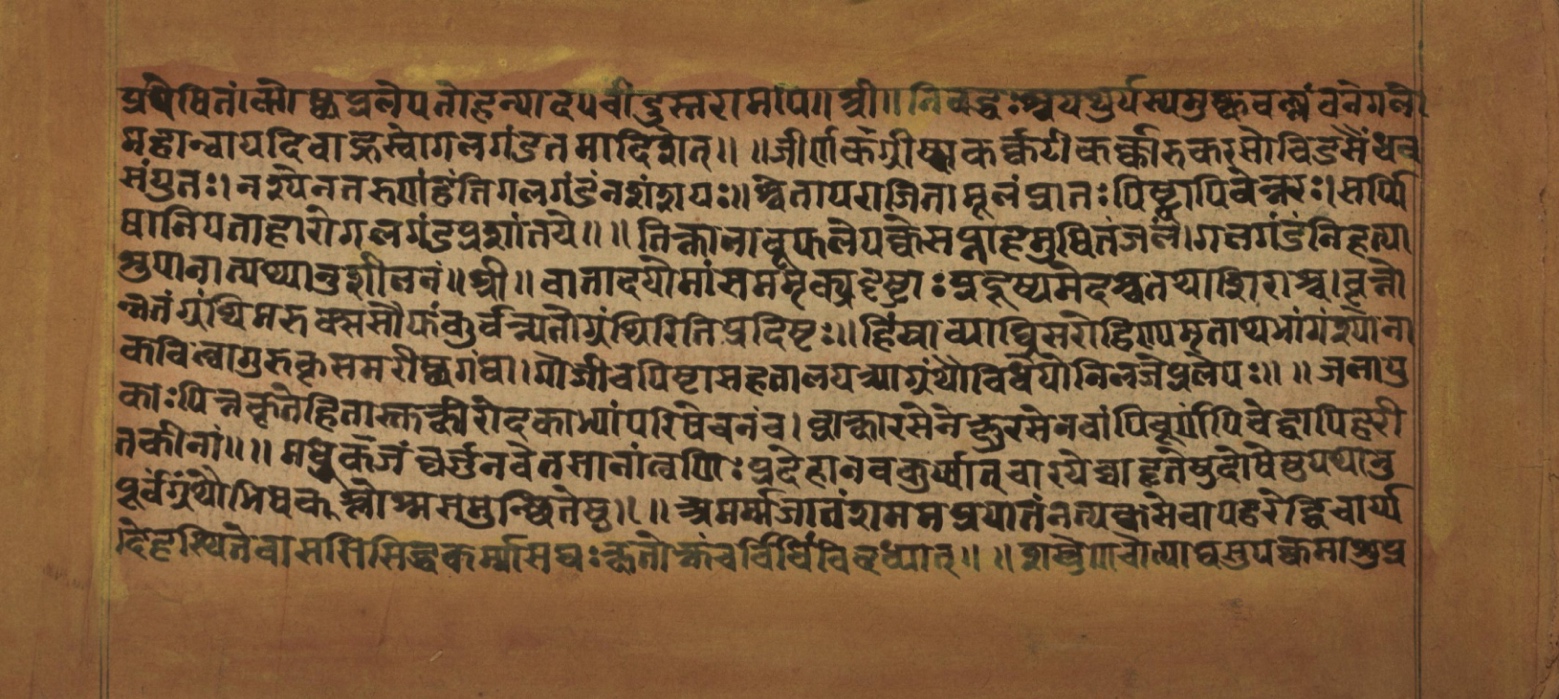 प्रपेषितं। मौष्कप्रलेपतो हन्यादपचीं दुस्तरामपि॥ श्री॥ निबद्धः श्वयथुर्यस्य मुष्कवल्लंबते गले।
महान्वा यदि वा ह्रस्वो गलगंडं तमादिशेत्॥ ॥ जीर्णकर्कारु कर्कटी कर्कारुकरसो विडसैंधव
संयुतः। नस्येन तरुणं हंति गलगंडं न संशयः॥ श्वेतापराजितामूलं प्रातः पिष्ट्वा पिबेन्नरः। सर्पि
षा नियताहारो गलगंडप्रशांतये॥ ॥ तिक्तालाबूफले पक्वे सप्ताहमुषितं जलं। गलगंडं निहत्या
शु पानात्पथ्यानुशीलनं॥ श्री॥ वातादयो मांसमसृक्प्रदुष्टाः प्रदूष्य मेदश्च तथा शिराश्च। वृत्तो
न्नतं ग्रंथिमरुक्ससोफं कुर्वन्त्यतो ग्रंथिरिति प्रदिष्टः॥ हिंस्रा
कबिल्वागुरुकृसमरीष्कगंधा। गोजी च पिष्टा सह तालपत्र्या ग्रंथौ विधेयो निलजे प्रलेपः॥ ॥ जलायु
काः पित्तकृते हितास्तु क्षीरोदकाभ्यां परिषेचनं च। द्राक्षारसेनेक्षुरसेन वापि चूर्णं पिबेद्वापि हरी
तकीनां॥ ॥ मधूकजंब्वर्जुनवेतसानां त्वग्भिः प्रदेहानवकुर्यात् हृतेषु दोषेषु यथानु
पूर्वं ग्रंथौ भिषक् श्लेष्मसमुच्छ्रितेषु। ॥ अमर्मजातं शममप्रयातंन्नत्पक्वमेवापहरेद्विचार्य
दहेत्स्थिते वासृजि सिद्धकर्मा सद्यःक्षतोक्तं च विधिं विदध्यात्॥ ॥ शस्त्रेण चोत्पाद्य सुपक्वमाशु प्र